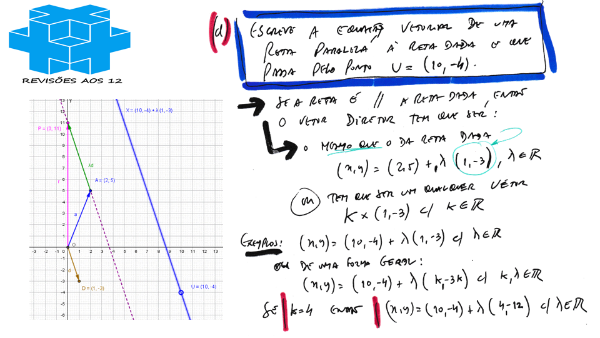 REVISÕES AOS 12
(d) ESCREVE A EQUAÇÃO VETORIAL DE UMA
RETA PARALELA À RETA DADA E QUE
PASSA PELO PONTO U = (10,-4).
SE A RETA É // A RETA DADA, ENTÃO
O VETOR DIRETOR TEM QUE SER:
O MESMO QUE O DA RETA DADA
(x,y) = (2,5) + λ (1,-3), λ ∈ ℝ
OU TEM QUE SER UM QUALQUER VETOR
K × (1,-3) c/ K ∈ ℝ
EXEMPLOS: (x,y) = (10,-4) + λ (1,-3) c/ λ ∈ ℝ
OU DE UMA FORMA GERAL:
(x,y) = (10,-4) + λ (k,-3k) c/ k,λ ∈ ℝ
SE k=4 ENTÃO (x,y) = (10,-4) + λ (4,-12) c/ λ ∈ ℝ
X = (10, -4) + λ (1, -3)
P = (0, 11)
A = (2, 5)
U = (10, -4)
D = (1, -3)